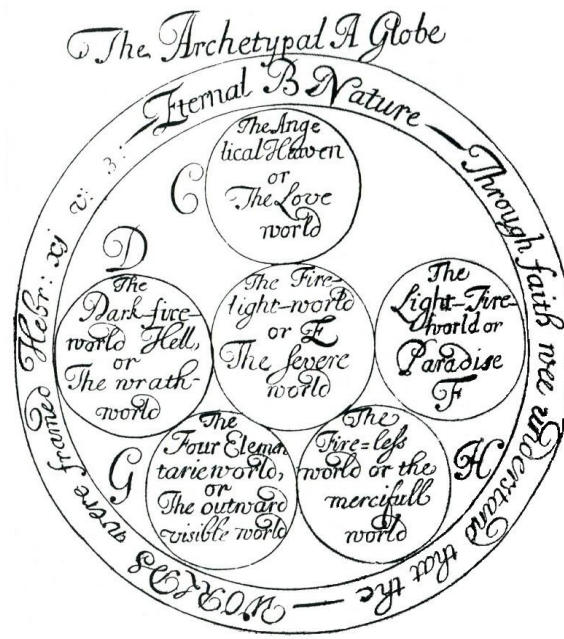 The Archetypal A Globe
Eternal B Nature — Through faith wee understand that the — WORLDS were framed Hebr: xj v: 3: —
C
The Ange
lical Heaven
or
The Love
world
D
The
Dark-fire-
world Hell,
or
The wrath-
world
The Fire-
light-world
or E
The severe
world
The
Light-Fire-
world or
Paradise
F
G
The
Four Elemen
tarie world,
or
The outward
visible world
The
Fire=less
world or the
mercifull
world
H